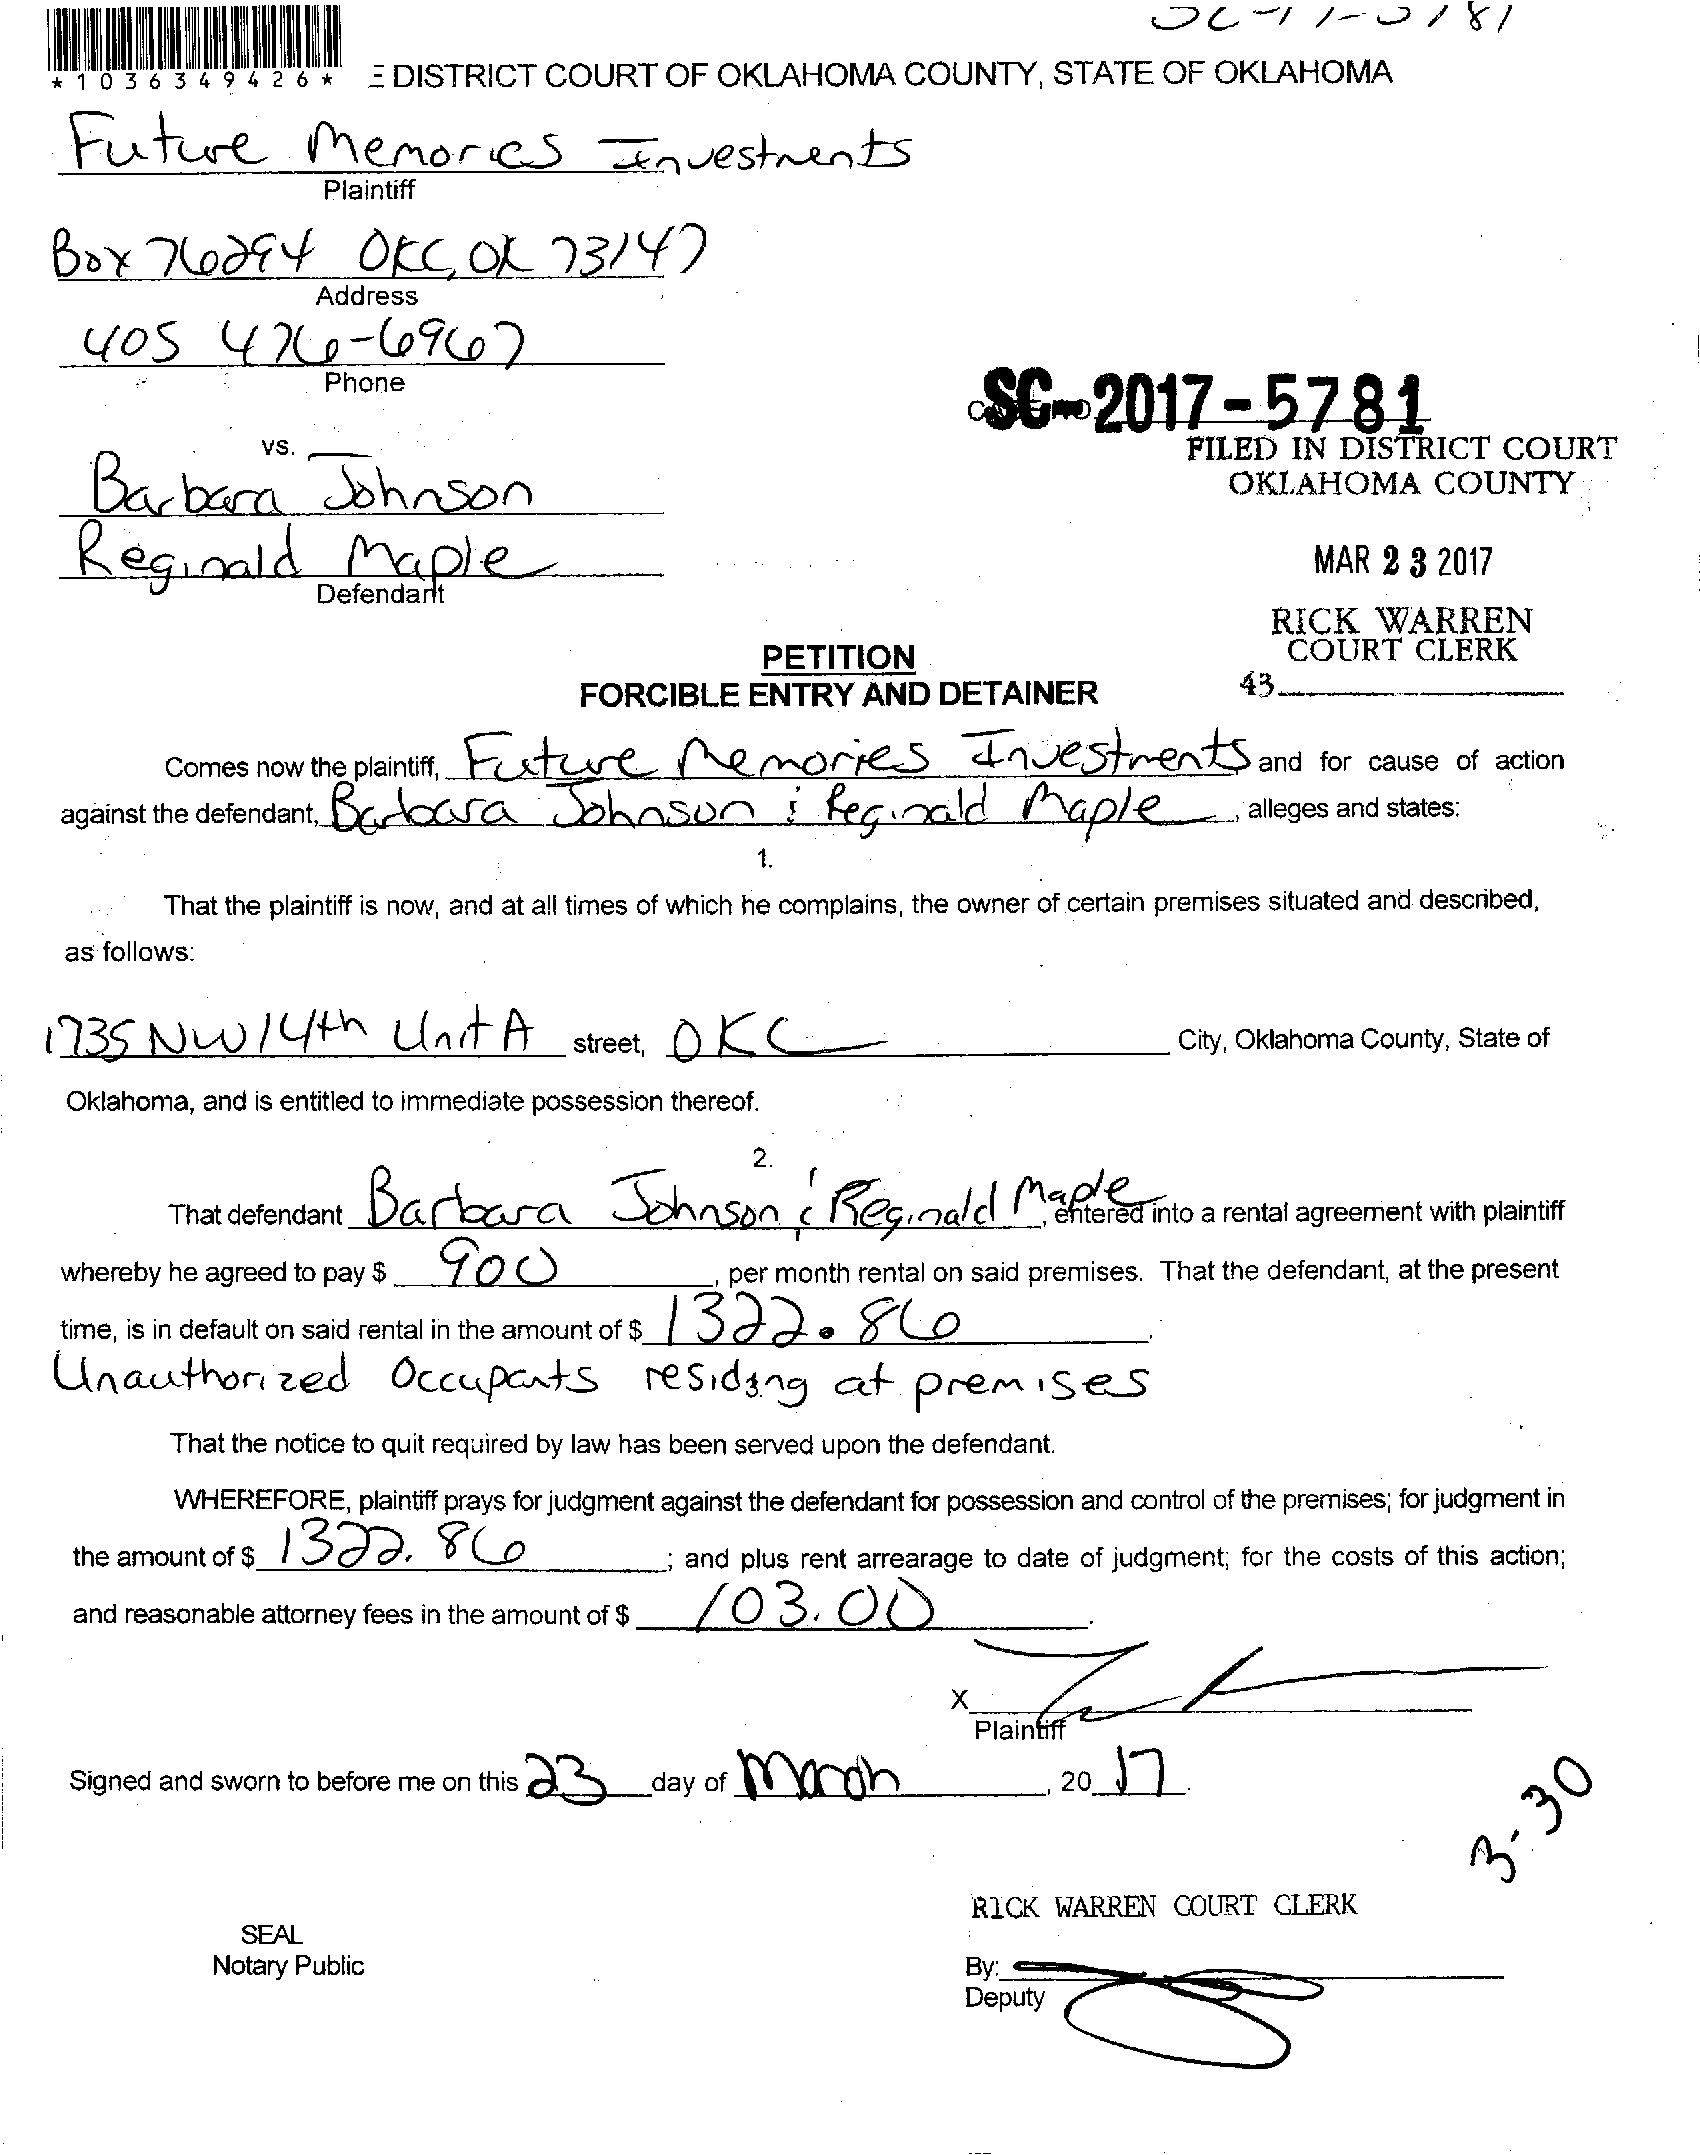 *1036349426*
DISTRICT COURT OF OKLAHOMA COUNTY, STATE OF OKLAHOMA
Future Memories Investments
Plaintiff
Box 76294 OKC, OK 73147
Address
405 476-6967
Phone
SC-2017-5781
FILED IN DISTRICT COURT
OKLAHOMA COUNTY
MAR 23 2017
RICK WARREN
COURT CLERK
43
vs.
Barbara Johnson
Reginald Maple
Defendant
PETITION
FORCIBLE ENTRY AND DETAINER
Comes now the plaintiff, Future Memories Investments and for cause of action
against the defendant, Barbara Johnson & Reginald Maple, alleges and states:
1.
That the plaintiff is now, and at all times of which he complains, the owner of certain premises situated and described,
as follows:
1735 NW 14th Unit A street, OKC City, Oklahoma County, State of
Oklahoma, and is entitled to immediate possession thereof.
2.
That defendant Barbara Johnson & Reginald Maple, entered into a rental agreement with plaintiff
whereby he agreed to pay $ 900, per month rental on said premises. That the defendant, at the present
time, is in default on said rental in the amount of $ 1322.86.
Unauthorized Occupants residing at premises
That the notice to quit required by law has been served upon the defendant.
WHEREFORE, plaintiff prays for judgment against the defendant for possession and control of the premises; for judgment in
the amount of $ 1322.86; and plus rent arrearage to date of judgment; for the costs of this action;
and reasonable attorney fees in the amount of $ 103.00.
X
Plaintiff
Signed and sworn to before me on this 23 day of March, 2017.
3-30
RICK WARREN COURT CLERK
SEAL
Notary Public
By:
Deputy